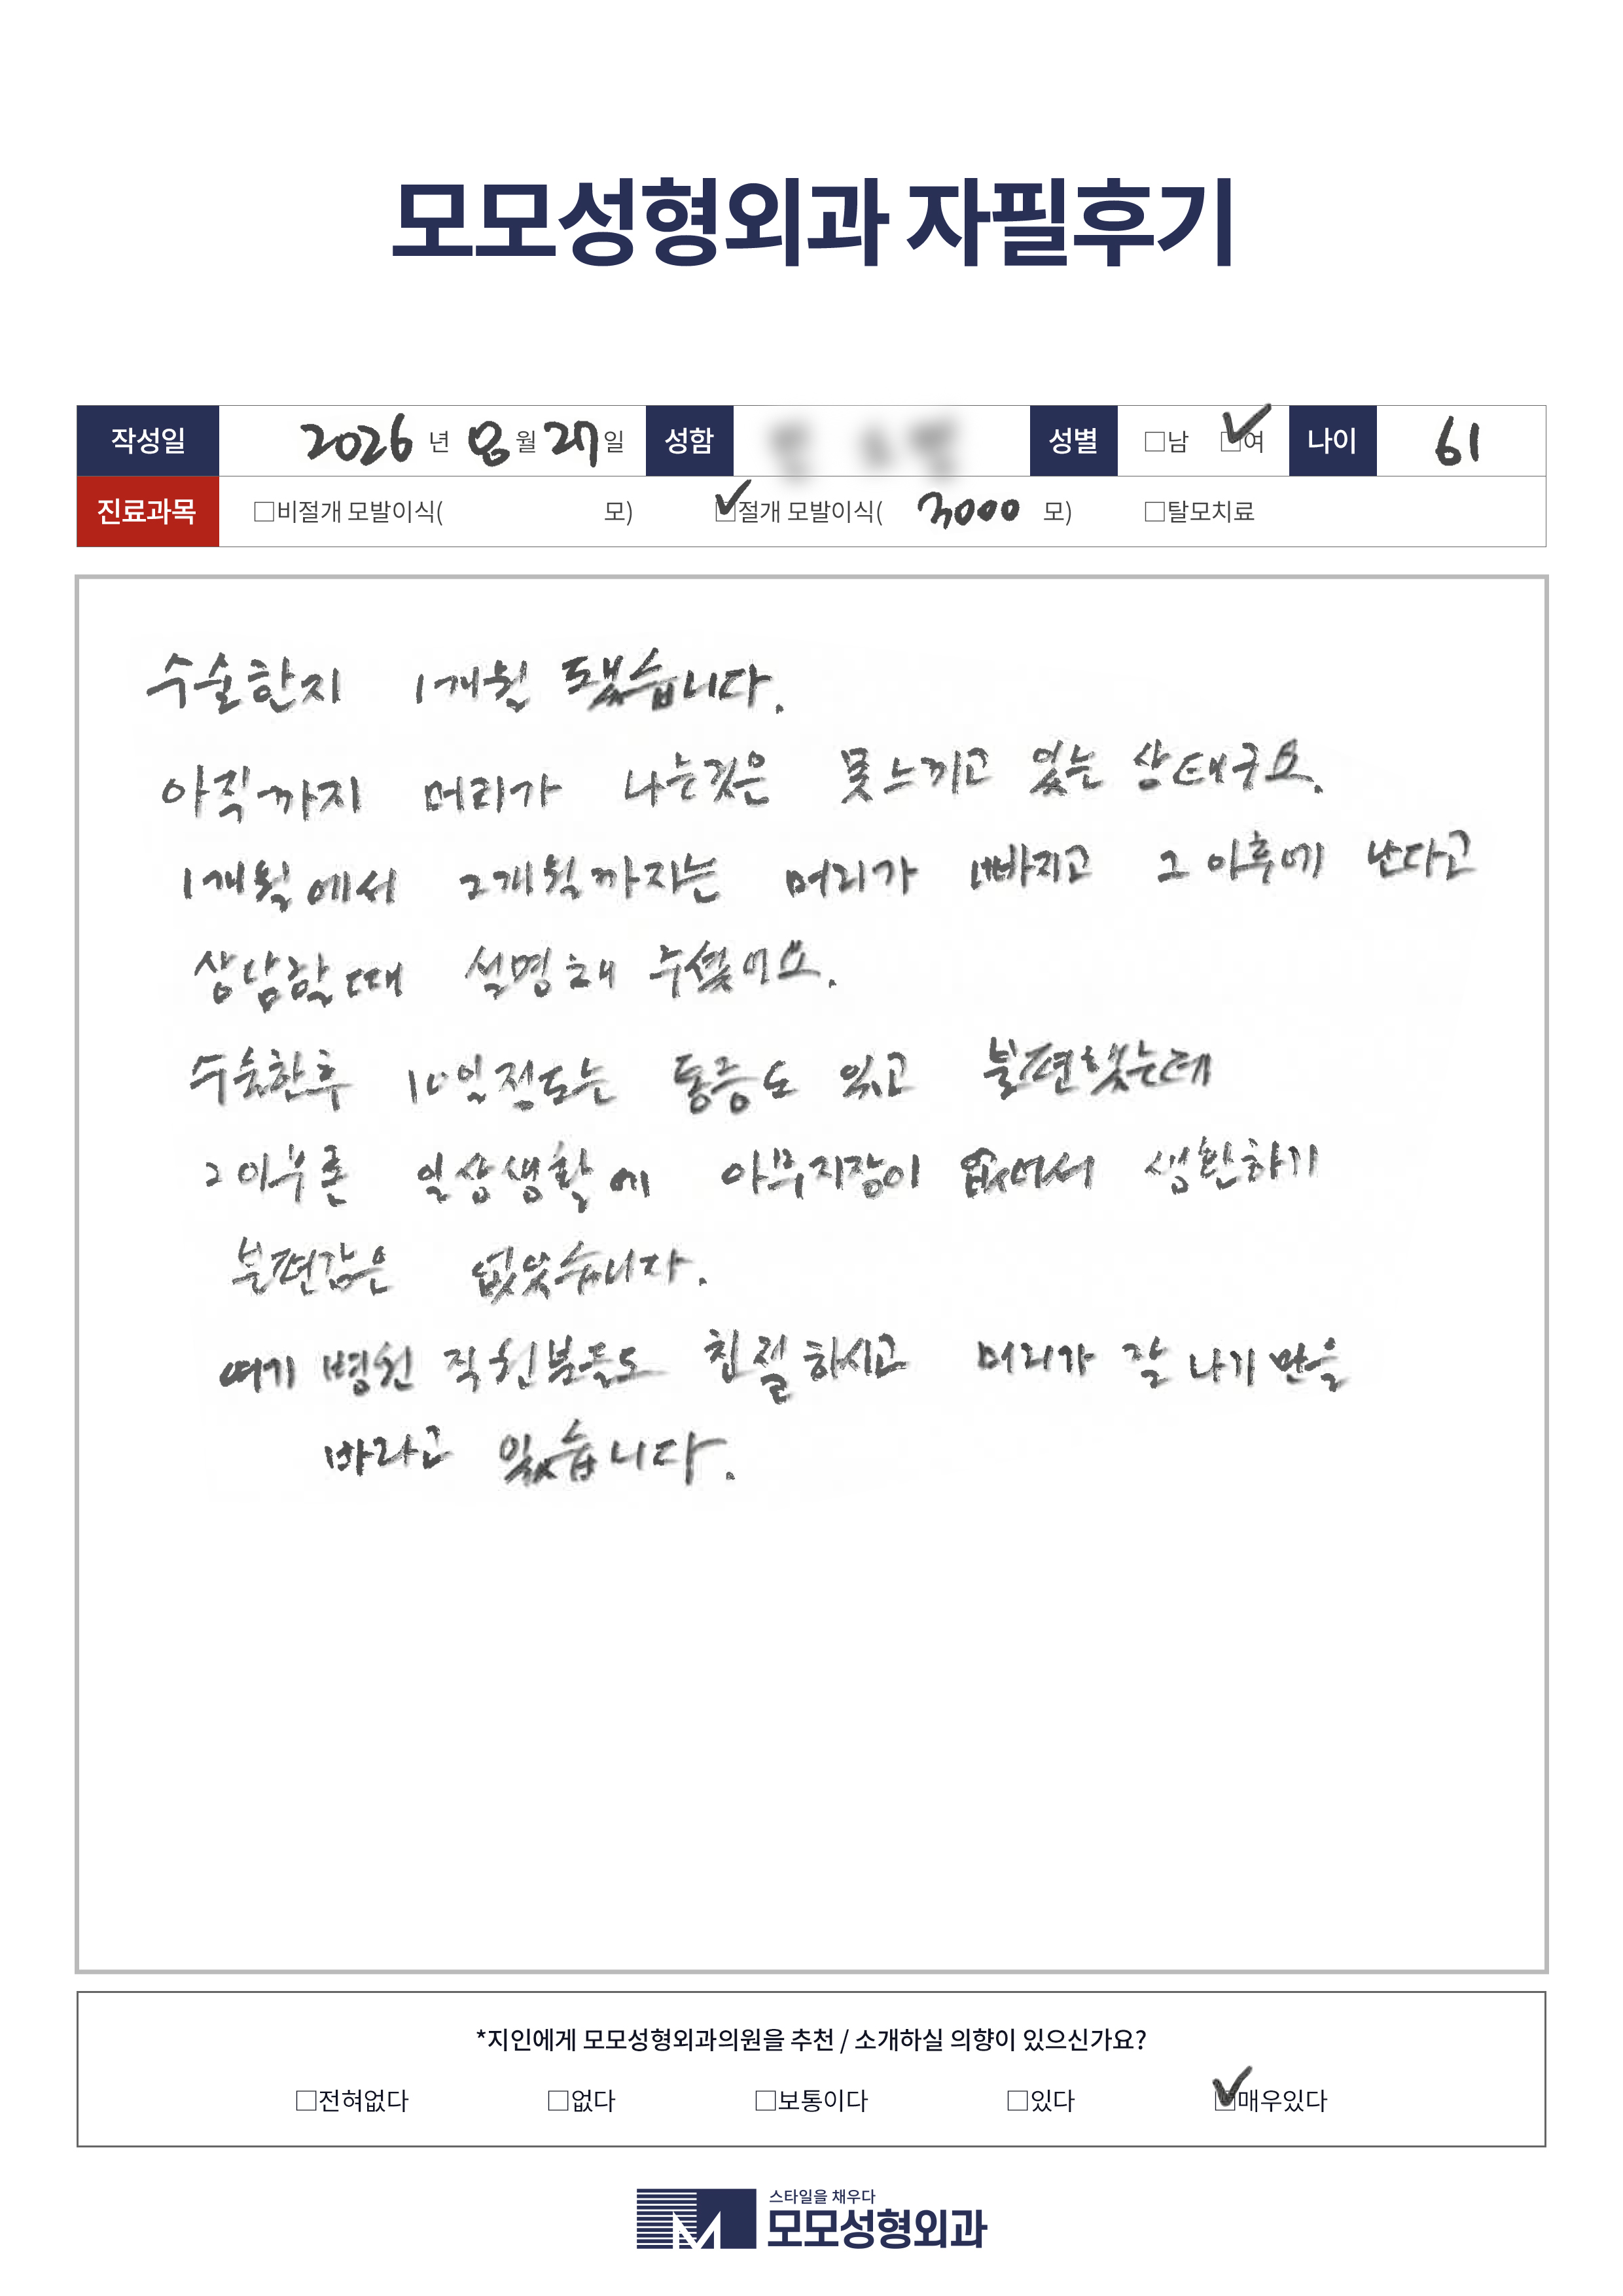 모모성형외과 자필후기
작성일 2026 년 8 월 27 일 성함 성별 □남 ☑여 나이 61
진료과목 □비절개 모발이식( 모) ☑절개 모발이식( 3000 모) □탈모치료
수술한지 1개월 됐습니다.
아직까지 머리가 나는것은 못느끼고 있는 상태구요.
1개월에서 2개월까지는 머리가 빠지고 그 이후에 난다고
상담할때 설명해 주셨어요.
수술한후 10일정도는 통증도 있고 불편했는데
그 이후론 일상생활에 아무지장이 없어서 생활하기
불편감은 없었습니다.
여기 병원 직원분들도 친절하시고 머리가 잘 나기만을
바라고 있습니다.
*지인에게 모모성형외과의원을 추천 / 소개하실 의향이 있으신가요?
□전혀없다 □없다 □보통이다 □있다 ☑매우있다
스타일을 채우다
모모성형외과